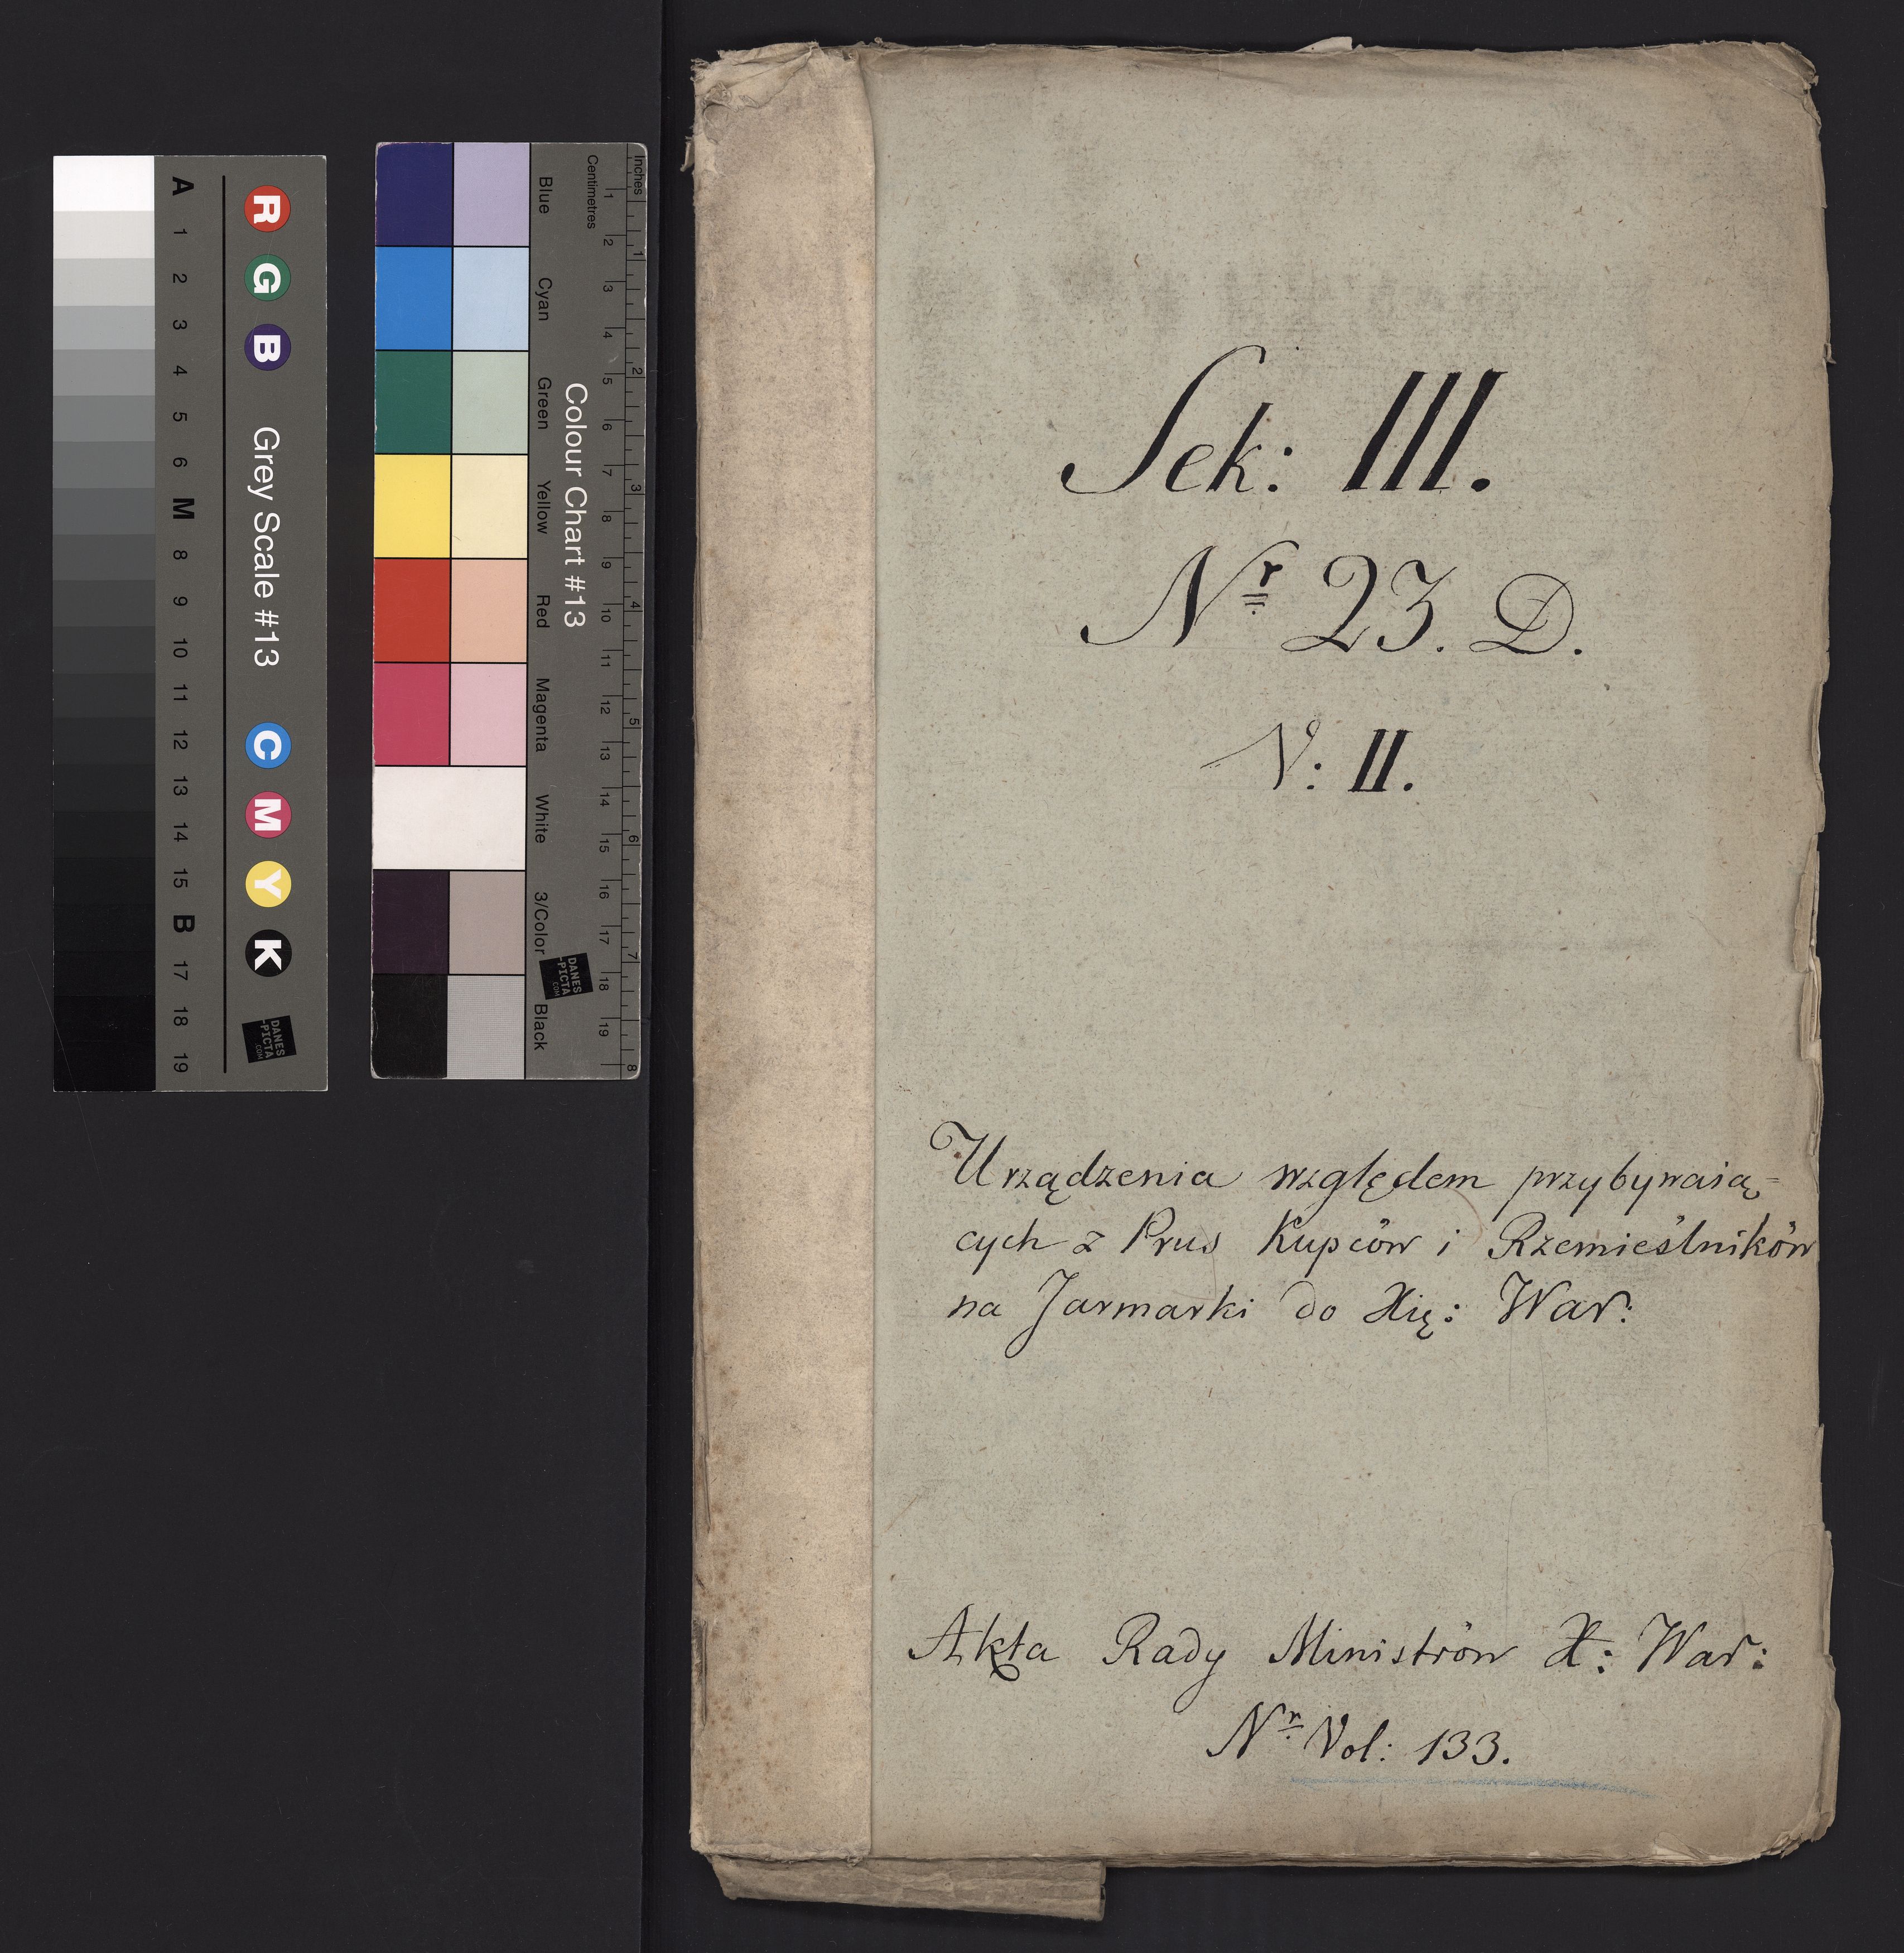 Sek: III.
Nr 23. D.
V: II.
Urządzenia względem przybywaią=
cych z Prus Kupców i Rzemieślników
na Jarmarki do Xię: War:
Akta Rady Ministrów X: War:
Nr Vol: 133.
A 1 2 3 4 5 6 M 8 9 10 11 12 13 14 15 B 17 18 19
R G B Grey Scale #13 C M Y K
DANES
-PICTA
.COM
Blue Cyan Green Yellow Red Magenta White 3/Color Black
Colour Chart #13
DANES
-PICTA
.COM
Centimetres 1 2 3 4 5 6 7 8 9 10 11 12 13 14 15 16 17 18 19
Inches 1 2 3 4 5 6 7 8